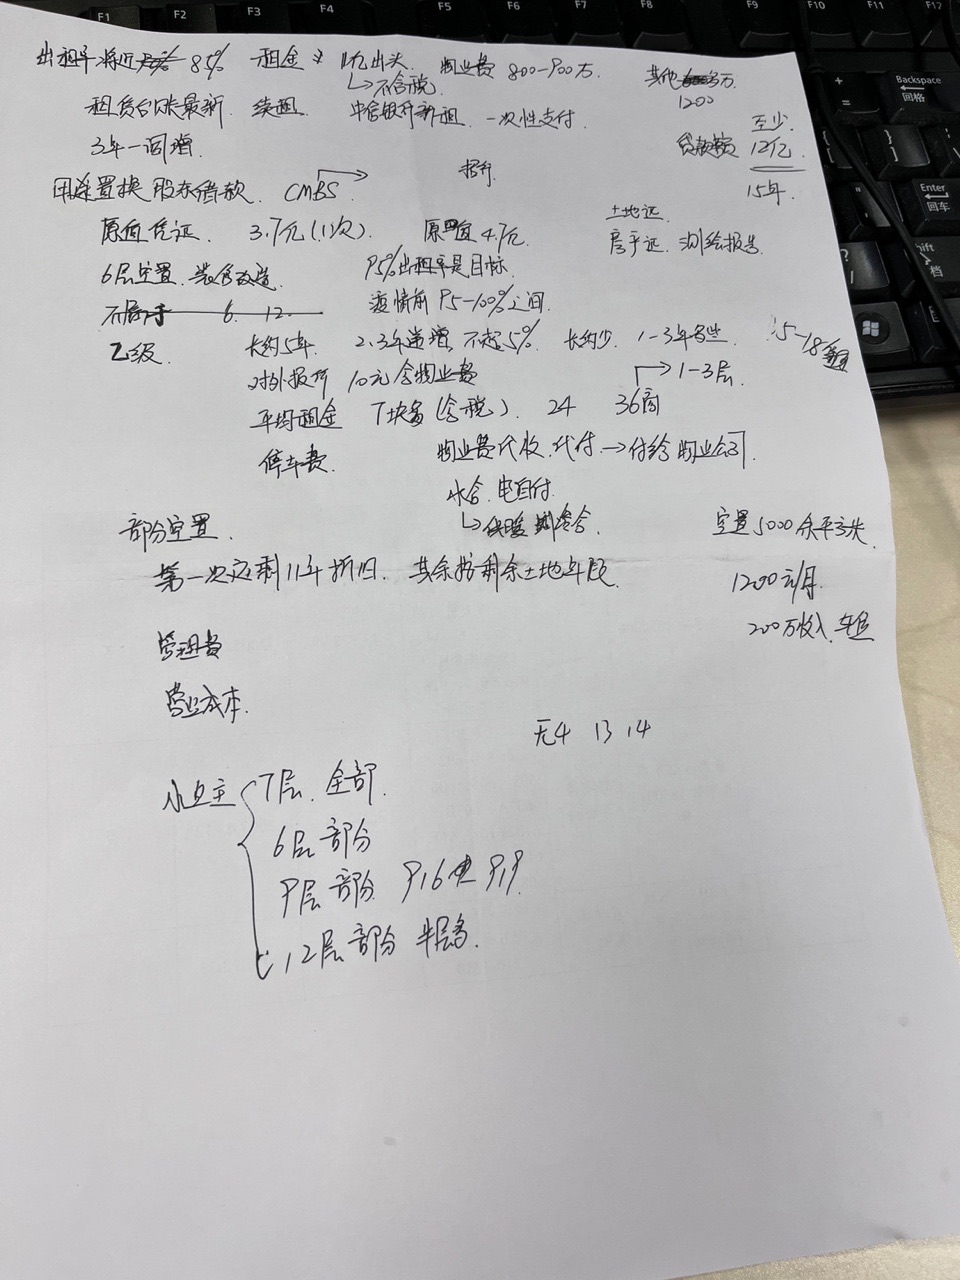 出租率将近 85% 租金 1亿出头 物业费 800-900万 其他 万
↳不含税 1200
租赁台账最新 续租 中信银行新租 一次性支付 至少
3年一周增 贷款 12亿
15年
用途置换股东借款 CMBS →
原值凭证 3.7亿(11次) 原 值4.7亿 土地证
房产证 测绘报告
6层空置 装修改造 95%出租率是目标
不 6 12 疫情前 95-100%之间
乙级 长约5年 2.3年递增 不超5% 长约少 1-3年为主 15-18
对外报价 10元含物业费 →1-3层
平均租金 7块多(含税) 24 36商
停车费 物业费代收、代付→付给物业公司
水含、电自付
↳供暖 含
部分空置 空置5000余平方米
第一次还剩11年折旧. 其余按剩余土地年限 1200元/月
200万收入 车位
管理费
营业成本
无4 13 14
小业主 { 7层 全部
6层 部分
9层 部分 916 919
12层 部分 半层多